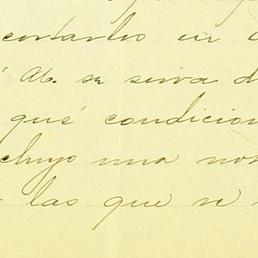 cortarlos en
Ab. se sirva d
qué condicion
cluyo una not
las que se